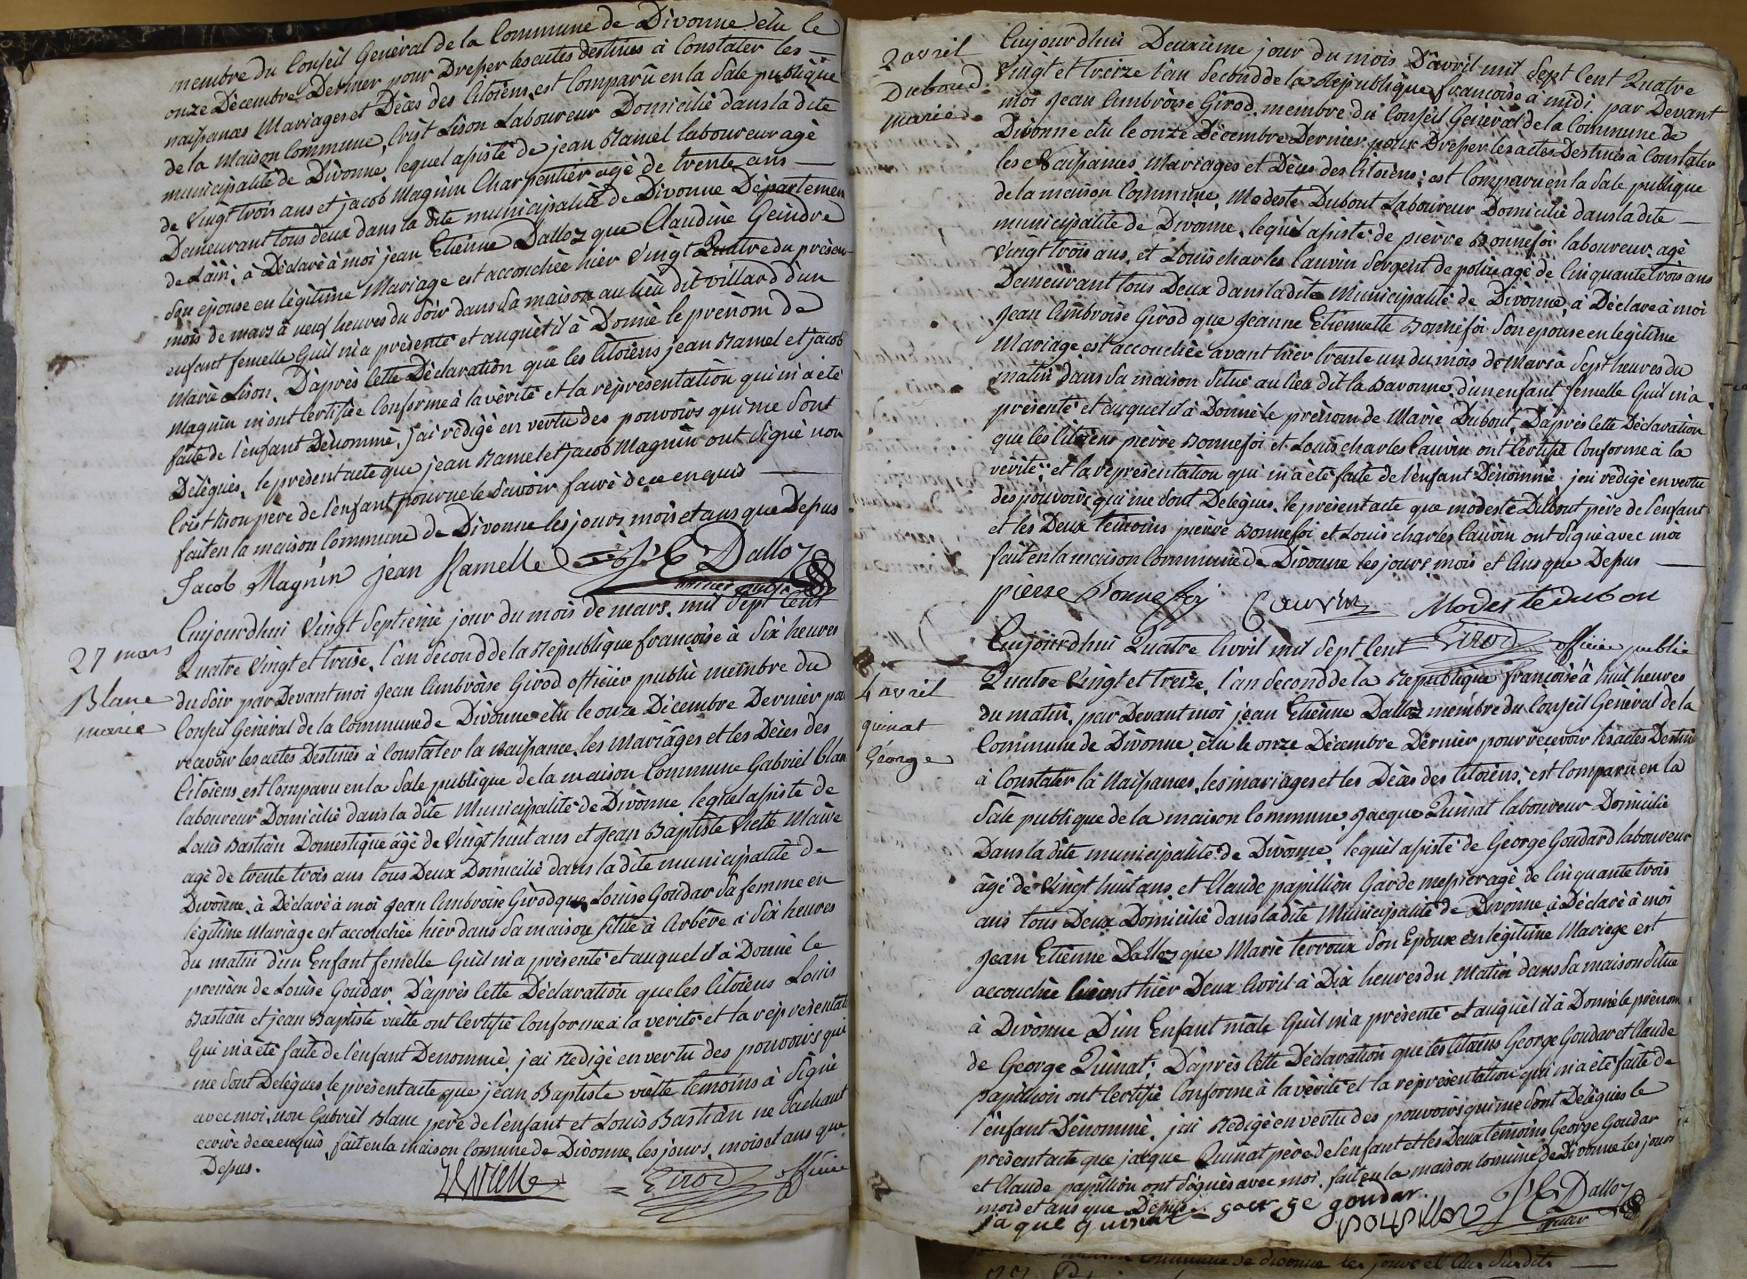 membre du Conseil Général de la Commune de Divonne élu le
onze Décembre Dernier pour Dresser les actes destinés à Constater les
naissances Mariages et Décès des Citoiens, est Comparû en la Sale publique
de la Maison Commune, Crist Lison Laboureur Domicilié dans la dite
municipalité de Divonne, lequel assisté de jean Ramel laboureur agé
de Vingt trois ans et jacob Magnin Charpentier agé de trente ans
Demeurant tous deux dans la dite municipalité de Divonne Département
de Lain; à Déclaré à moi jean Etienne Dalloz que Claudine Geindre
son épouse en légitime Mariage est accouchée hier vingt Quatre du présent
mois de mars à neuf heures du Soir dans Sa maison au lieu dit villard d'un
enfant femelle Quil m'a présenté et auquèl il à Donné le prénom de
Marie Lison. D'après Cette Déclaration que les Citoiens jean Ramel et jacob
Magnin m'ont Certifiée Conforme à la vérité et la représentation qui m'a été
faite de l'enfant Dénommé, J'ai rédigé en vertu des pouvoirs qui me Sont
Délégués, le présent acte que jean Ramel et Jacob Magnin ont Signé non
Crist Lison père de l'enfant pour ne le Savoir faire de ce enquis
fait en la maison Commune de Divonne les jours mois et ans que Depus
Jacob Magnin jean Ramelle J E Dalloz
officier public
27 mars
Blanc
marie
Aujourdhui Vingt Septieme jour du mois de mars, mil Sept Cent
Quatre Vingt et treise, l'an Second de la République françoise à Six heures
du Soir par Devant moi Jean Ambroise Girod officier public membre du
Conseil Général de la Commune de Divonne élu le onze Décembre Dernier pour
recevoir les actes Destinés à Constater la Naissance, les Mariâges et les Décès des
Citoiens, est Comparu en la Sale publique de la maison Commune Gabriel blanc
laboureur Domicilié dans la dite Municipalité de Divonne lequel assisté de
Louis Bastian Domestique âgé de Vingt huit ans et Jean Baptiste Viette Maire
agé de trente trois ans tous Deux Domicilié dans la dite municipalité de
Divonne, à Déclaré à moi Jean Ambroise Girod que Louise Goudar Sa femme en
légitime Mariage est accouchée hier dans Sa maison Sitüé à Arbère à Six heures
du matin d'un Enfant femelle Quil m'a présenté et auquel il à Donné le
prénom de Louise Goudar. D'après Cette Déclaration que les Citoiens Louis
Bastian et jean Baptiste viette ont Certifié Conforme à la verité et la représentation
Qui m'a été faite de l'enfant Denommé, j'ai Redigé en vertu des pouvoirs qui
me Sont Delégués le présent acte que jean Baptiste viette témoins à Signé
avec moi, non Gabriel Blanc père de l'enfant et Louis Bastian ne Sachant
ecrire de ce enquis, fait en la maison Comune de Divonne, les jours, mois et ans que
Depus.
Girod officier
2 avril
Duboud
marie
Aujourdhui Deuxième jour du mois D'avril mil Sept Cent Quatre
Vingt et treize l'an Second de la République françoise à midi, par Devant
moi Jean Ambroise Girod, membre du Conseil Général de la Commune de
Divonne elu le onze Décembre Dernier pour Dresser les actes Destinés à Constater
les Naissances Mariages et Décès des Citoiens; est Comparu en la Sale publique
de la maison Commune, Modeste Dubout Laboureur Domicilié dans la dite
municipalité de Divonne, lequil assisté de pierre Bonnefoi laboureur agé
Vingt trois ans, et Louis charles Cauvin Sergent de police agé de Cinquante trois ans
Demeurant tous Deux dans la dite Municipalité de Divonne, a Déclaré à moi
Jean Ambroise Girod que Jeanne Etiennette Bonnefoi Son epouse en legitime
Mariage est accouchée avant hier trente un du mois de Mars à Sept heures du
matin dans Sa maison Situé au lieu dit la Bavonne, d'un enfant femelle Quil m'a
présenté et auquel il à Donné le prénom de Marie Dubout, D'après Cette Déclaration
que les Citoiens pièrre Bonnefoi et Louis charles Cauvin ont Certifié Conforme à la
vérité; et la représentation qui m'a été faite de l'enfant Dénommé j'ai redigé en vertu
des pouvoirs qui me Sont Delégués, le présent acte que modeste Dubout père de l'enfant
et les Deux temoins pierre Bonnefoi et Louis charles Cauvin ont Signé avec moi
fait en la maison Commune de Divonne les jours mois et Ans que Depus
pierre Bonnefoy Cauvin Modeste dubou
Girod officier public
4 avril
quinat
George
Aujourdhui Quatre Avril mil Sept Cent
Quatre Vingt et treize, l'an Second de la République françoise à huit heures
du matin, par Devant moi jean Etienne Dalloz membre du Conseil Général de la
Commune de Divonne élu le onze Décembre Dernier pour recevoir les actes Destinés
à Constater la Naissances, les mariages et les Décès des Citoiens, est Comparu en la
Sale publique de la maison Commune Jacque Quinat laboureur Domicilié
Dans la dite municipalité de Divonne, lequil assisté de George Goudard laboureur
âgé de Vingt huit ans et Claude papillion Garde messier agé de Cinquante trois
ans tous Deux Domicilié dans la dite Municipalité de Divonne à Déclaré à moi
Jean Etienne Dalloz que Marie terroux Son Epoux en légitime Mariage est
accouchée avant hier Deux Avril à Dix heures du Matin dans Sa maison Situé
à Divonne D'un Enfant mâle Quil m'a présenté et auquel il à Donné le prénom
de George Quinat; D'après Cette Déclaration que les Citoiens George Goudar et Claude
papillion ont Certifié Conforme à la vérité et la représentation qui m'a été faite de
l'enfant Dénommé, j'ai Redigé en vertu des pouvoirs qui me Sont Délégués le
présent acte que jacque Quinat père de l'enfant et les Deux témoins George Goudar
et Claude papillion ont Signés avec moi, fait en la maison Comune de Divonne les jours
mois et ans que Depus. george goudar
jaque quinat J E Dalloz